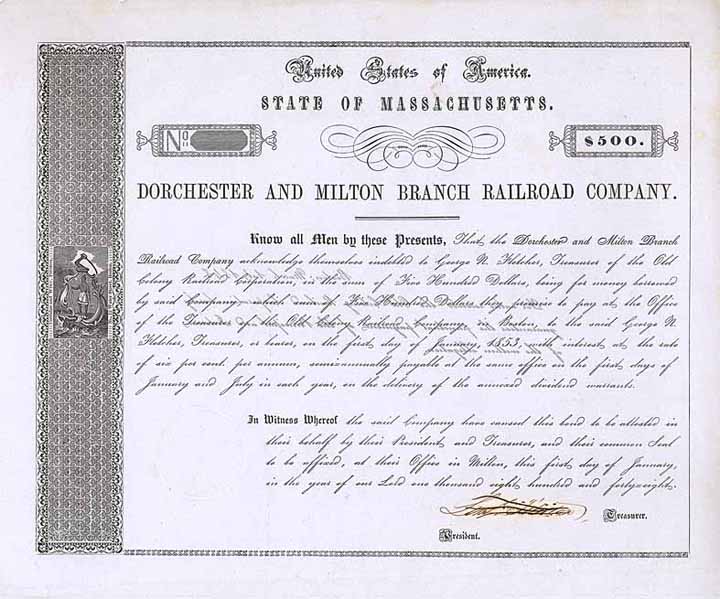 United States of America.
STATE OF MASSACHUSETTS.
No.
$500.
DORCHESTER AND MILTON BRANCH RAILROAD COMPANY.
Know all Men by these Presents, That the Dorchester and Milton Branch
Railroad Company acknowledge themselves indebted to George N. Fletcher, Treasurer of the Old
Colony Railroad Corporation, in the sum of Five Hundred Dollars, being for money borrowed
by said Company; which sum of Five Hundred Dollars they promise to pay at the Office
of the Treasurer of the Old Colony Railroad Company, in Boston, to the said George N.
Fletcher, Treasurer, or bearer, on the first day of January, 1853, with interest at the rate
of six per cent. per annum, semi-annually payable at the same office on the first days of
January and July in each year, on the delivery of the annexed dividend warrants.
In Witness Whereof the said Company have caused this bond to be attested in
their behalf by their President and Treasurer, and their common Seal
to be affixed, at their Office in Milton, this first day of January,
in the year of our Lord one thousand eight hundred and forty-eight.
Treasurer.
President.